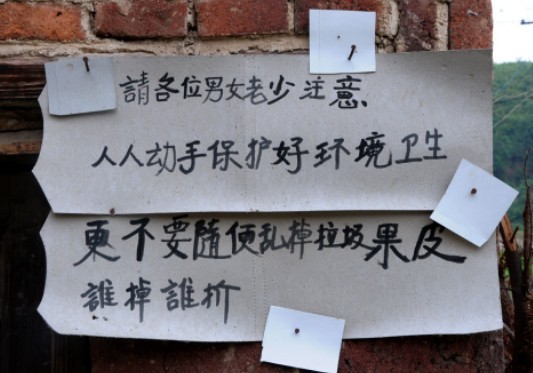 請各位男女老少注意
人人动手保护好环境卫生
更不要隨便乱掉垃圾果皮
誰掉誰折